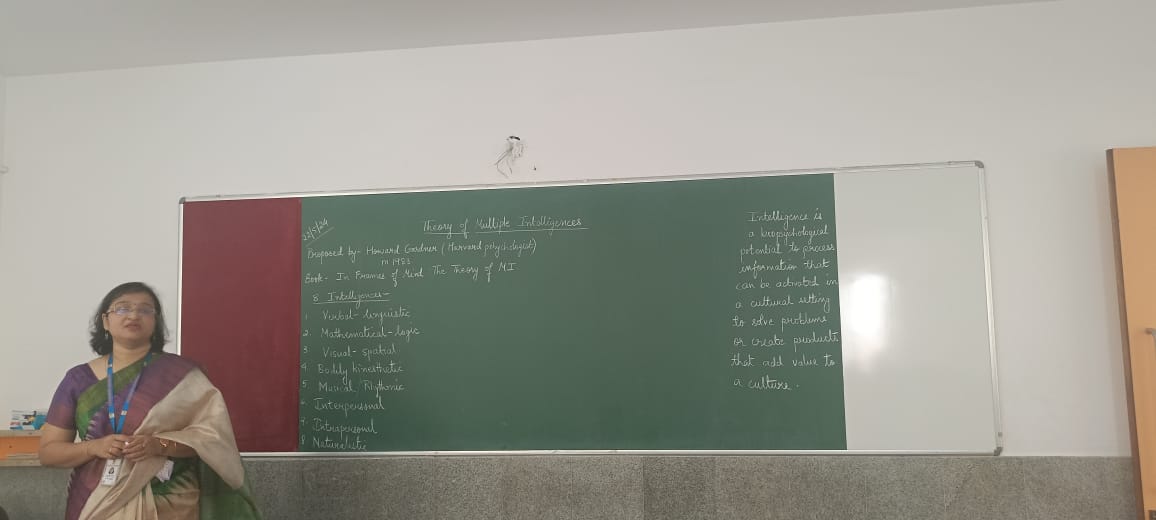 Theory of Multiple Intelligences
Proposed by- Howard Gardner (Harvard psychologist)
in 1983
Book- In Frames of Mind The Theory of MI
8 Intelligences-
1. Verbal-linguistic
2. Mathematical-logic
3. Visual-spatial
4. Bodily kinesthetic
5. Musical Rhythmic
6. Interpersonal
7. Intrapersonal
8 Naturalistic
Intelligence is
a biopsychological
potential to process
information that
can be activated in
a cultural setting
to solve problems
or create products
that add value to
a culture.